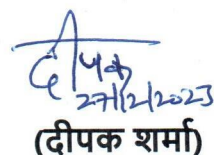 दीपक
27/12/2023
(दीपक शर्मा)